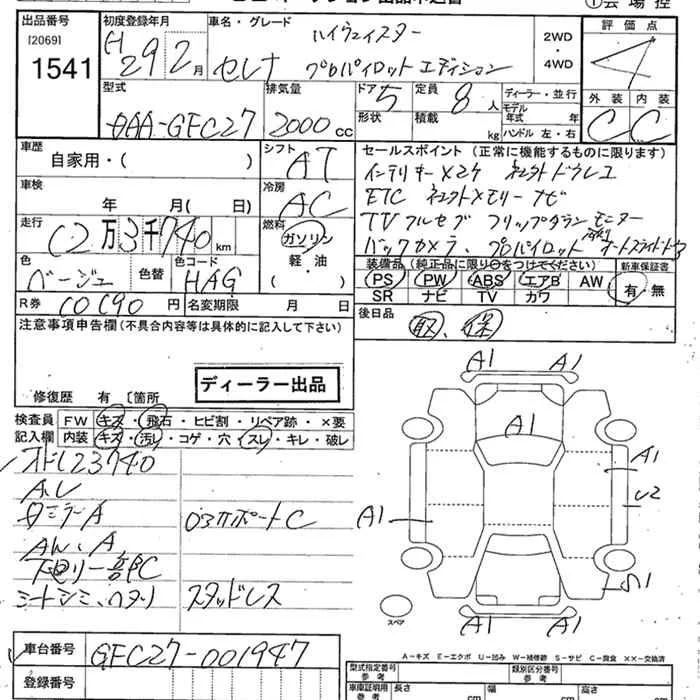 出品番号
[2069]
1541
初度登録年月
H29 2月
車名・グレード
ハイウェイスター
セレナ プロパイロットエディション
2WD
・
4WD
①会場控
評価点
4
外装 内装
C C
型式
DAA-GFC27
排気量
2000cc
ドア 5
形状
定員 8人
積載 kg
ディーラー・並行
モデル
年式 年
ハンドル 左・右
車歴
自家用・( )
シフト AT
車検
年 月( 日)
冷房 AC
走行
(2万3千740km
燃料
ガソリン
軽・油
( )
色
ベージュ
色替
色コード
HAG
R券 円
名変期限 月 日
セールスポイント(正常に機能するものに限ります)
インテリキー×2ケ
ETC コネクトメモリーナビ
TVフルセグ フリップダウンモニター
バックカメラ、プロパイロット
装備品(純正品に限り○をつけてください)
PS PW ABS エアB AW
SR ナビ TV カワ
新車保証書
有・無
後日品
取、保
注意事項申告欄(不具合内容等は具体的に記入して下さい)
ディーラー出品
修復歴 有 〔箇所
検査員
記入欄
FW キズ・飛石・ヒビ割・リペア跡・×要
内装 キズ・汚レ・コゲ・穴・スレ・キレ・破レ
23740
ミラーA
サポートC
AW、A
下回り一部C
スタッドレス
A1 A1
A1
A1
A1
A1 A1
スペア
車台番号 GFC27-001947
登録番号
A-キズ E-エクボ U-凹み W-補修跡 S-サビ C-腐食 ××-交換済
型式指定番号
参考
類別区分番号
参考
車庫証明用
参考
長さ cm
幅 cm
高さ cm